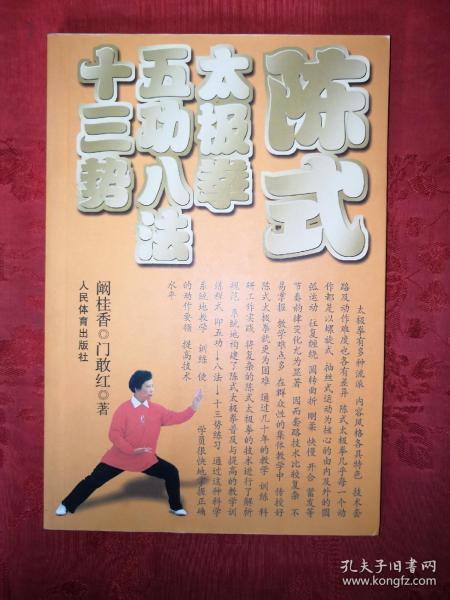 陈式
太极拳
五功八法
十三势
太极拳有多种流派 内容风格各具特色 技术套
路及动作难度也各有差异 陈式太极拳几乎每一个动
作都是以螺旋式 抽丝式运动为核心的由内及外的圆
弧运动 往复缠绕 圆转曲折 刚柔 快慢 开合 蓄发等
节奏韵律变化尤为显著 因而套路技术比较复杂 不
易掌握 教学难点多 在群众性的集体教学中 传授好
陈式太极拳就更为困难 通过几十年的教学 训练 科
研工作实践 将复杂的陈式太极拳的技术进行了解析
规范 系统地构建了陈式太极拳普及与提高的教学训
练程式 即五功→八法→十三势练习 通过这种科学
系统地教学 训练 使学员很快地掌握正确
的动作要领 提高技术
水平
阚桂香◎门敢红◎著
人民体育出版社
孔夫子旧书网
www.kongfz.com